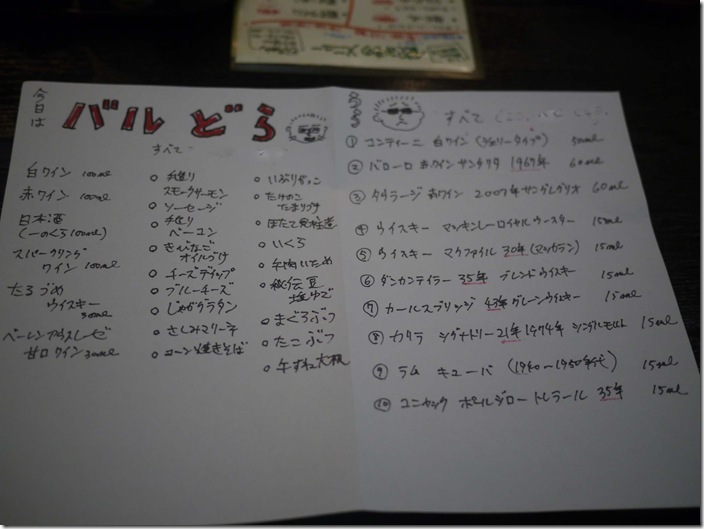 今日は
バル どら
すべて
白ワイン 100ml
赤ワイン 100ml
日本酒
(一のくら100ml)
スパークリング
ワイン 100ml
たるづめ
ウイスキー
30ml
ベーレンアウスレーゼ
甘口ワイン 30ml
○ 手造り
スモークサーモン
○ ソーセージ
○ 手造り
ベーコン
○ きびなご
オイルづけ
○ チーズディップ
○ ブルーチーズ
○ じゃがグラタン
○ さしみマリーネ
○ コーン焼きそば
○ いぶりがっこ
○ たけのこ
たまりづけ
○ ほたて
○ いくら
○ 牛肉いため
○ 秘伝豆
塩ゆで
○ まぐろぶつ
○ たこぶつ
○ 牛すね大根
すべて
① コンティーニ 白ワイン(シェリータイプ) 50ml
② バローロ 赤ワイン 1967年 60ml
③ タウラージ 赤ワイン 2007年サングレゴリオ 60ml
④ ウイスキー マッキンレーロイヤル 15ml
⑤ ウイスキー マクファイル 30年(マッカラン) 15ml
⑥ ダンカンテイラー 35年 ブレンドウイスキー 15ml
⑦ カールスブリッジ 43年 グレーンウイスキー 15ml
⑧ シグナトリー 21年 1974年 シングルモルト 15ml
⑨ ラム キューバ (1940〜1950年代) 15ml
⑩ コニャック ポールジロー トレラール 35年 15ml